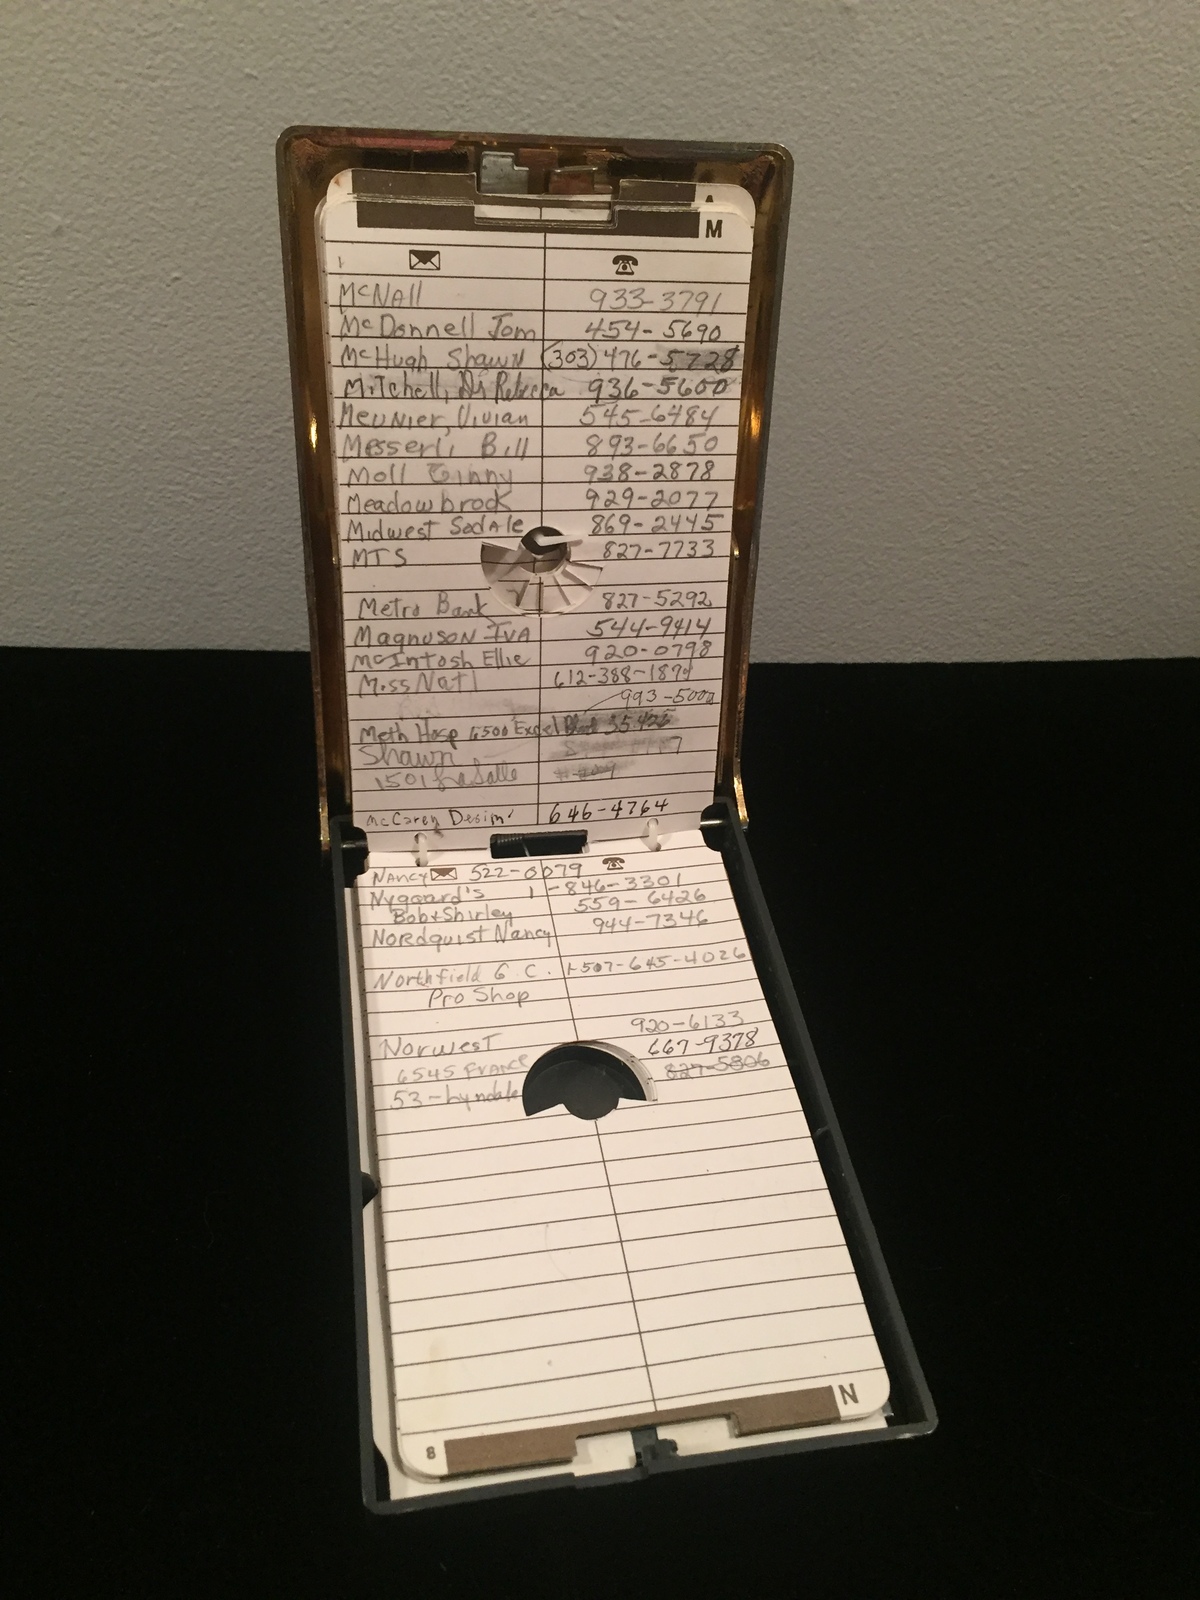 A
M
McNall 933-3791
McDonnell Tom 454-5690
McHugh Shawn (303) 476-5728
Mitchell, Dr Rebecca 936-5600
Meunier, Vivian 545-6484
Messerli Bill 893-6650
Moll Ginny 938-2878
Meadowbrock 929-2077
Midwest Sodale 869-2445
MTS 827-7733
Metro Bank 827-5292
Magnuson Iva 544-9414
McIntosh Ellie 920-0798
Miss Natl 612-388-187
993-5000
Meth Hosp 6500 Excel Blvd 55426
Shawn
1501 LaSalle
McCarey Design 646-4764
Nancy 522-0079
Nygaard's 1-846-3301
Bob+Shirley 559-6426
Nordquist Nancy 944-7346
Northfield G.C. 1-507-645-4026
Pro Shop
920-6133
Norwest 667-9378
6545 France 827-5806
53-Lyndale
N
8